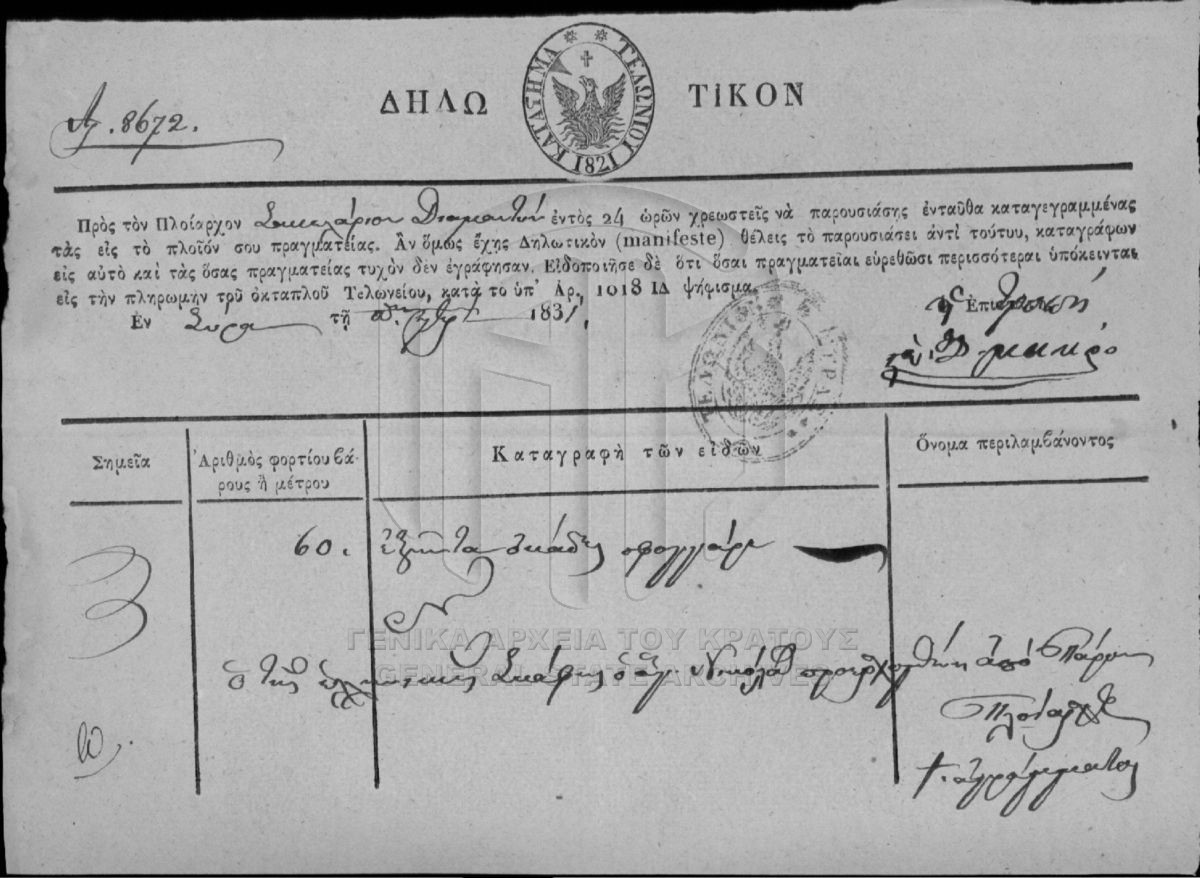 Αρ. 8672.
ΔΗΛΩ ΤΙΚΟΝ
ΚΑΤΑΣΤΗΜΑ ΤΕΛΩΝΙΟΥ 1821
Πρὸς τὸν Πλοίαρχον Σακελάριον Διαμαντὴν ἐντὸς 24 ὡρῶν χρεωστεῖς νὰ παρουσιάσῃς ἐνταῦθα καταγεγραμμένας
τὰς εἰς τὸ πλοῖόν σου πραγματείας. Ἂν ὅμως ἔχῃς Δηλωτικὸν (manifeste) θέλεις τὸ παρουσιάσει ἀντὶ τούτυυ, καταγράφων
εἰς αὐτὸ καὶ τὰς ὅσας πραγματείας τυχὸν δὲν ἐγράφησαν. Εἰδοποιῆσε δὲ ὅτι ὅσαι πραγματεῖαι εὑρεθῶσι περισσότεραι ὑπόκεινται
εἰς τὴν πληρωμὴν τοῦ ὀκταπλοῦ Τελωνείου, κατὰ τὸ ὑπ' Ἀρ. 1018 ΙΔ ψήφισμα.
Ἐν Σύρα τῇ 1831,
ΤΕΛΩΝΙΟΝ
Σημεῖα
Ἀριθμὸς φορτίου βά-
ρους ἢ μέτρου
Καταγραφὴ τῶν εἰδῶν
Ὄνομα περιλαμβάνοντος
60. ἑξήντα ὀκάδες σφογγάρι
ὁ τῆς ἑλληνικῆς Σκάφης ὁ ἅγ. Νικόλαος προερχομένη ἀπὸ Πάρον
Πλοίαρχος
†. ἀγράμματος
ΓΕΝΙΚΑ ΑΡΧΕΙΑ ΤΟΥ ΚΡΑΤΟΥΣ
GENERAL STATE ARCHIVES